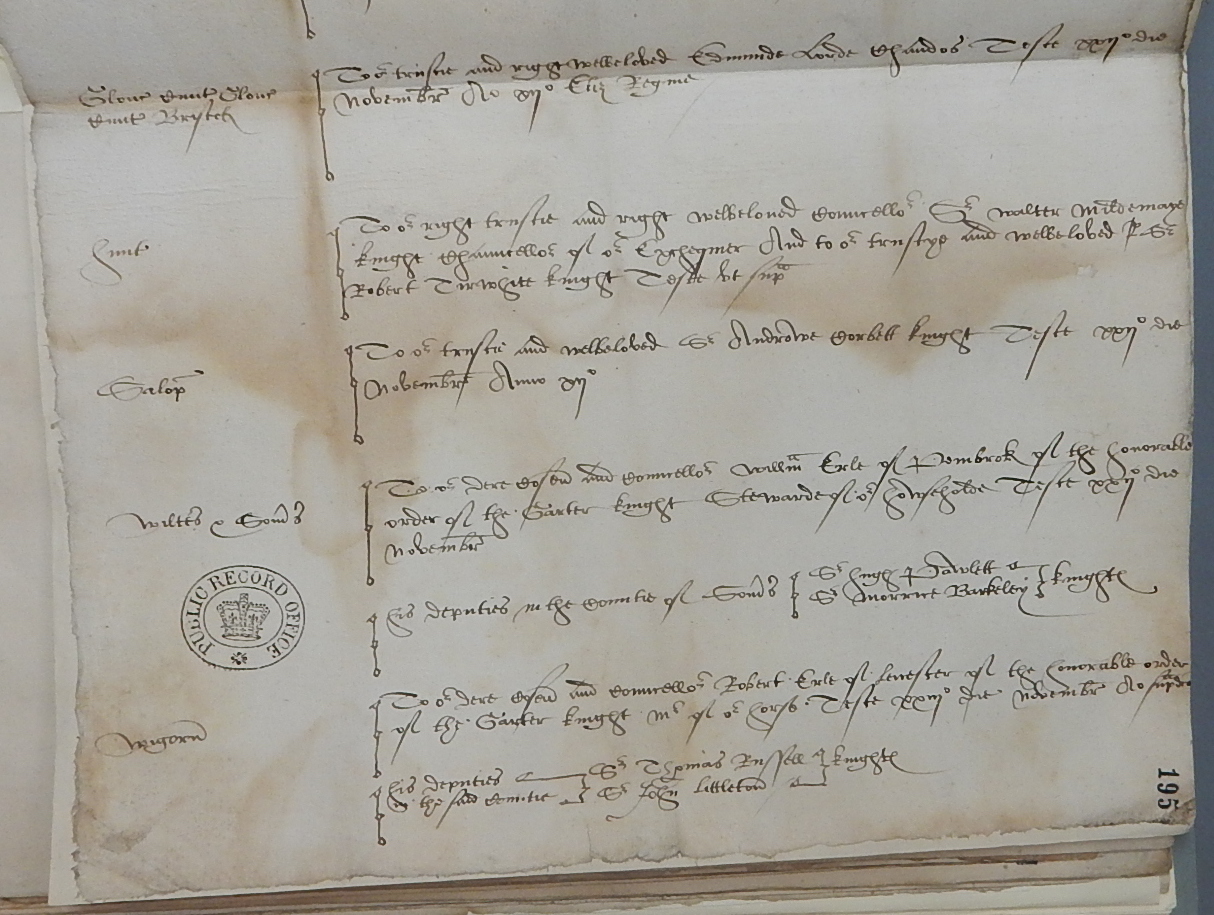 Glouc Ciuit Glouc
Ciuit Bristoll
To or trustie and right welbeloved Edmunde Lorde Chandos Teste xxijo die
Novembr Ao xijo Eliz Regine
Hunt
To or right trustie and right welbeloued Councellor Sr walter Mildemaye
knight Chauncellor of or Exchequier And to or trustye and welbeloved Sr
Robert Tirwhite knight Teste vt supa
Salop
To or trustie and welbeloved Sr Androwe Corbett knight Teste xxijo die
Novembr Anno xijo
Wiltes & Soms
To or dere Cosen and Councellor Willm Erle of Pembrok of the honorable
order of the Garter knight Stewarde of or howseholde Teste xxijo die
Novembr
his deputies in the Countie of Soms
Sr hugh Pawlett
Sr Morrice Barkeley
knightes
PUBLIC RECORD OFFICE
Wigorn
To or dere Cosen and Councellor Robert Erle of Leicester of the honorable order
of the Garter knight Mr of or horss Teste xxiijo die Novembr Ao supdco
his deputies
in the said Countie
Sr Thomas Russell
Sr John Littleton
knightes
195